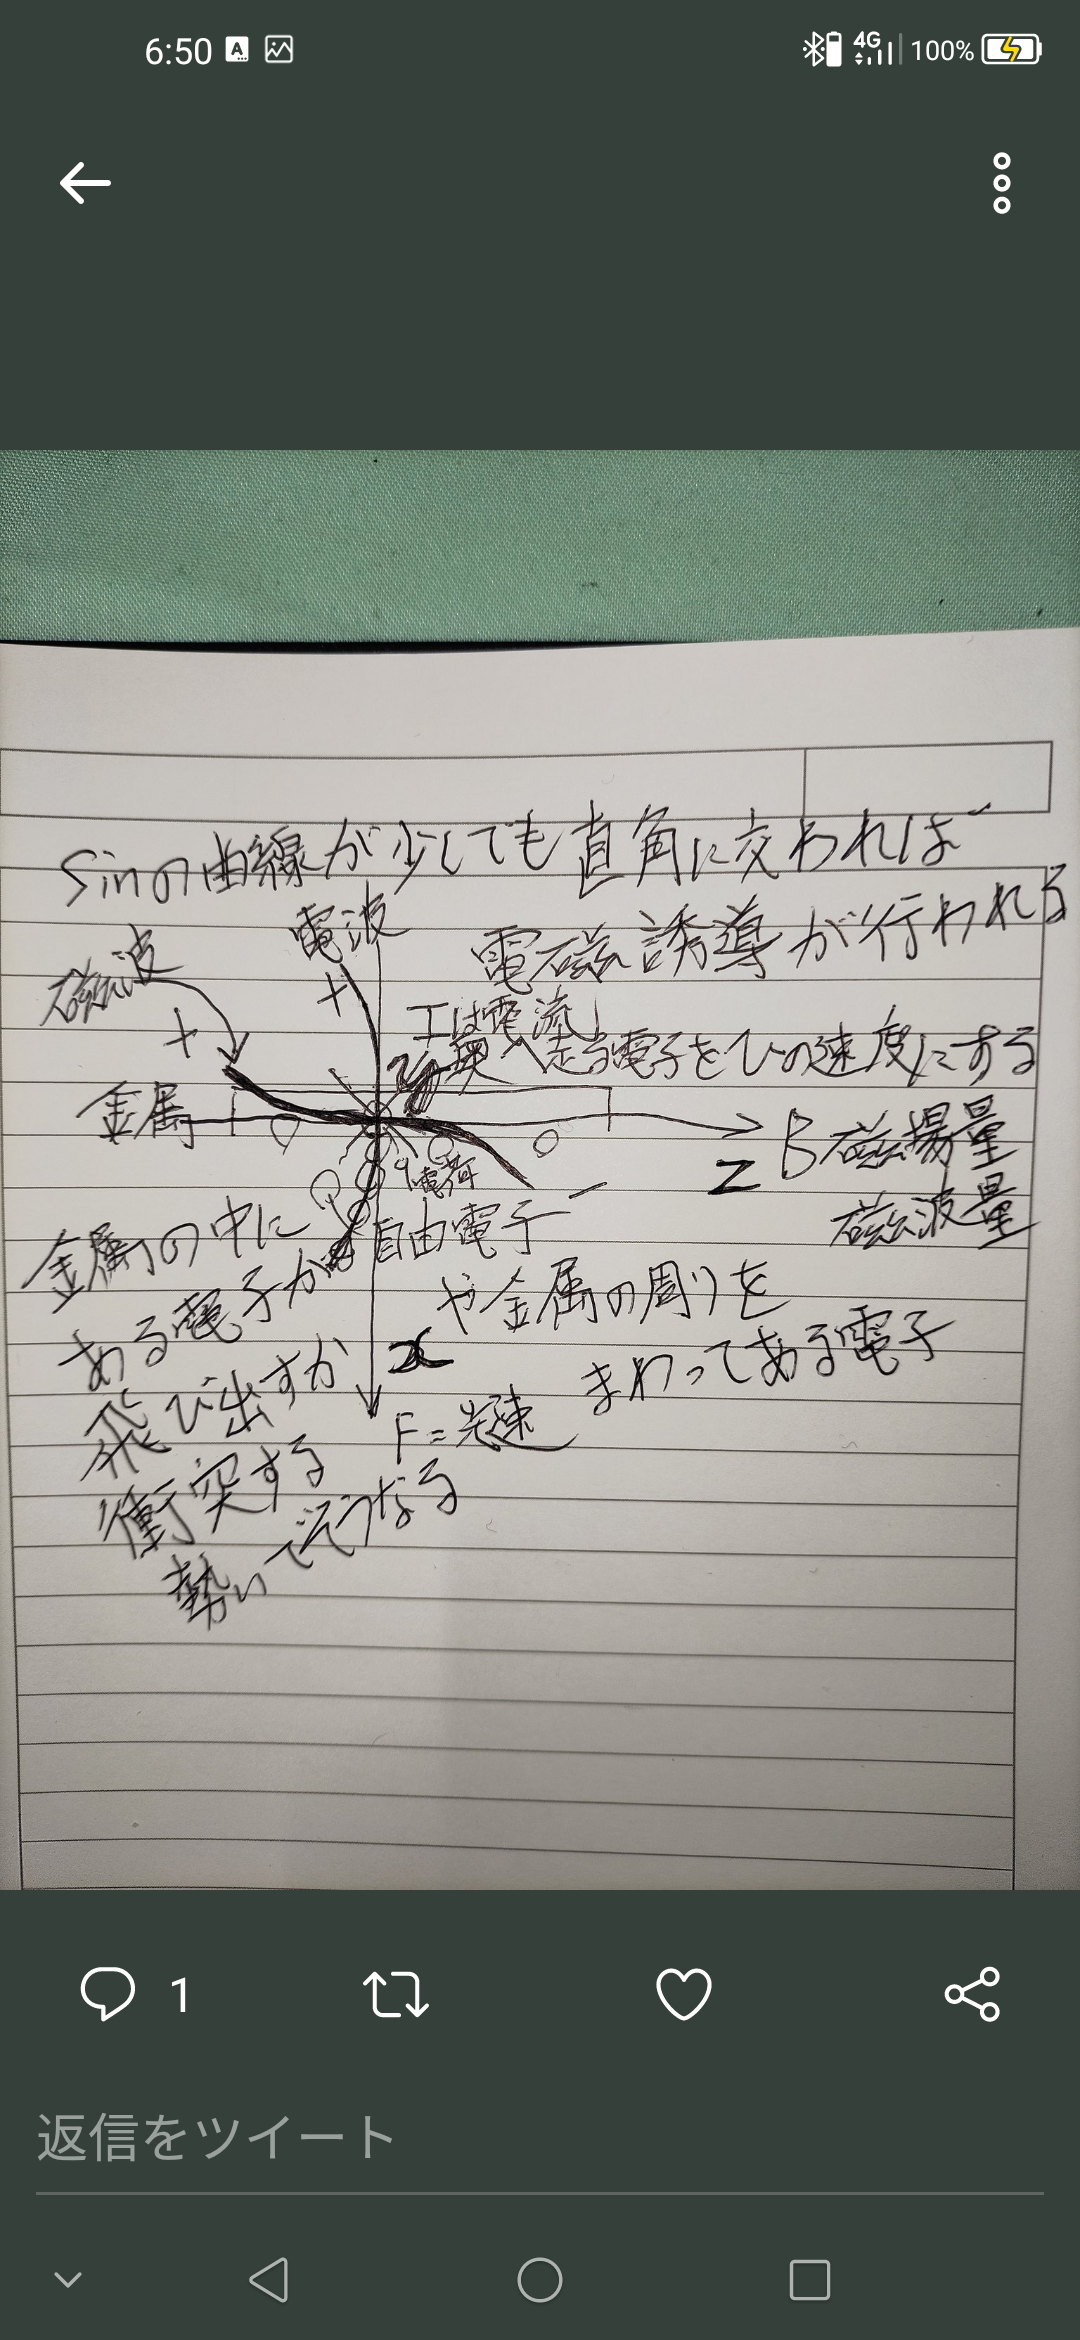 6:50
4G 100%
Sinの曲線が少しでも直角に交われば
電磁誘導が行われる
磁波
電波
+
+
Iは電流
走る電子をひの速度にする
金属
B 磁場量
Z
磁波量
q電荷
自由電子
金属の中に
ある電子が
飛び出すか
衝突する
勢いでそうなる
や金属の周りを
まわってある電子
x
F=光速
1
返信をツイート